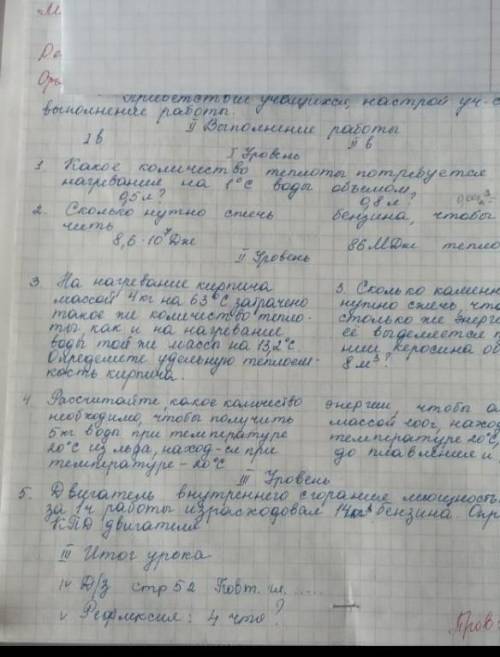 Приветствие учащихся, настрой уч-ся
выполнение работы.
II Выполнение работы
I в II в
I Уровень
1. Какое количество теплоты потребуется
нагревание на 1°С воды объёмом,
0,5 л? 0,8 л?
2. Сколько нужно сжечь бензина, чтобы
чить
8,6·10⁷ Дж 86 МДж тепло
II Уровень
3. На нагревание кирпича
массой 4 кг на 63°С затрачено
такое же количество тепло-
ты как и на нагревание
воды той же масса на 13,2°С
Определете удельную теплоем-
кость кирпича.
3. Сколько каменн
нужно сжечь, что
столько же энерг
её выделяется п
нии керосина об
8 м³?
4. Рассчитайте, какое количество энергии, чтобы
необходимо, чтобы получить массой 200г, наход
5 кг воды при температуре температуре 20°С,
20°С из льда, наход-ся при до плавления и
температуре -20°С
III Уровень
5. Двигатель внутреннего сгорание мощность
за 1ч работы израсходовал 14 бензина. Опр
КПД двигателя
III Итог урока
IV Д/З стр 52 Повт. гл. .....
V Рефлексия: 4 что?
Пров